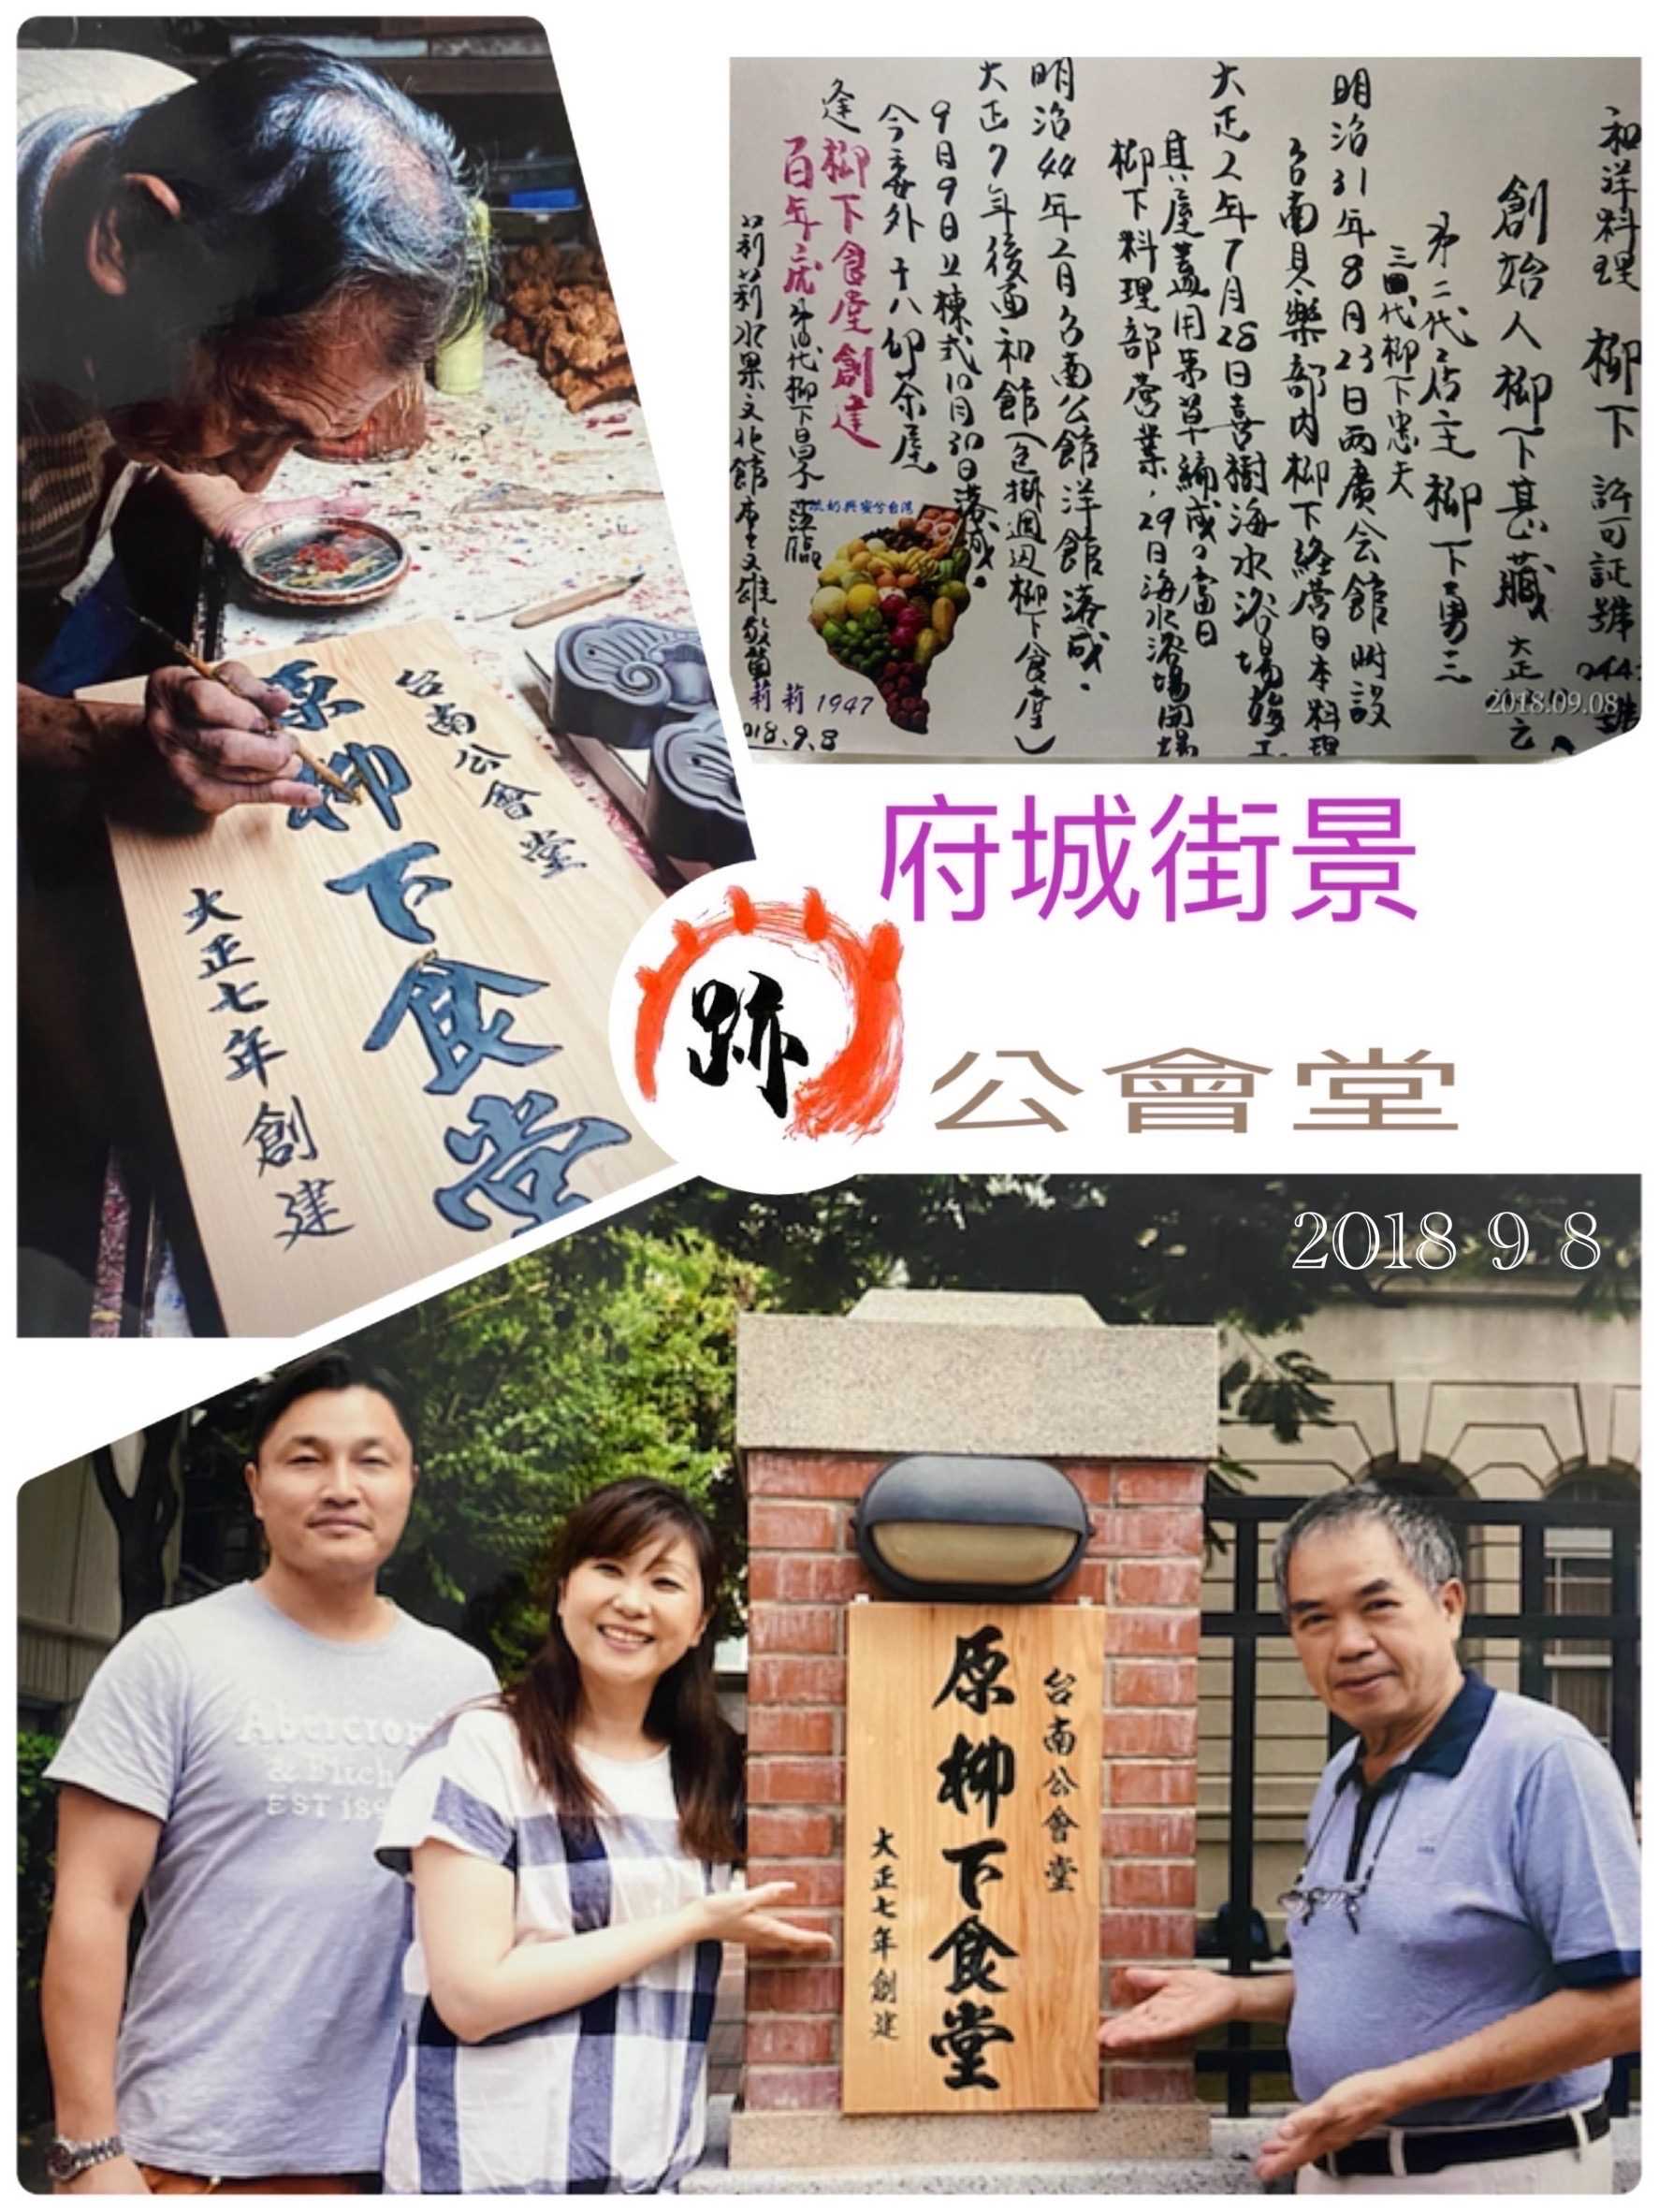 台南公會堂
原柳下食堂
大正七年創建
和洋料理 柳下 許可証號
創始人柳下甚藏
第二代店主柳下勇三
三四代柳下忠夫
明治31年8月23日兩廣会館附設
台南俱樂部內柳下経営日本料理
大正2年7月28日喜樹海水浴場
其屋蓋用茅草編成。當日
柳下料理部營業，29日海水浴場開場
明治44年2月台南公館洋館落成．
大正7年後面和館(包掛週边柳下食堂)
9月9日上棟式10月30日落成．
逢
柳下食堂創建
百年之慶
莉莉水果文化館
莉莉 1947
2018.9.8
2018.09.08
府城街景
跡
公會堂
2018 9 8
Abercrom
& Fitch
EST 189
台南公會堂
原柳下食堂
大正七年創建